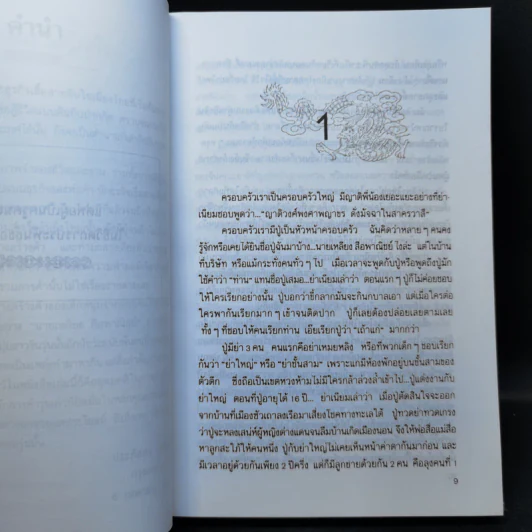 คำนำ
1
ครอบครัวเราเป็นครอบครัวใหญ่ มีญาติพี่น้องเยอะแยะอย่างที่ย่า
เนียมชอบพูดว่า..."ญาติวงศ์พงศาพญาธร ดั่งมัจฉาในสาครวาสี"
ครอบครัวเรามีปู่เป็นหัวหน้าครอบครัว ฉันคิดว่าหลาย ๆ คนคง
รู้จักหรือเคยได้ยินชื่อปู่ฉันมาบ้าง...นายเหลียง สือพาณิชย์ ไงล่ะ แต่ในบ้าน
ที่บริษัท หรือแม้กระทั่งคนทั่ว ๆ ไป เมื่อเวลาจะพูดกับปู่หรือพูดถึงปู่มัก
ใช้คำว่า "ท่าน" แทนชื่อปู่เสมอ...ย่าเนียมเล่าว่า ตอนแรก ๆ ปู่ก็ไม่ค่อยชอบ
ให้ใครเรียกอย่างนั้น ปู่บอกว่าขี้กลากมันจะกินกบาลเอา แต่เมื่อใครต่อ
ใครพากันเรียกมาก ๆ เข้าจนติดปาก ปู่ก็เลยต้องปล่อยเลยตามเลย
ทั้ง ๆ ที่ชอบให้คนเรียกท่าน เอ๊ยเรียกปู่ว่า "เถ้าแก่" มากกว่า
ปู่มีย่า 3 คน คนแรกคือย่าเหมยหลิง หรือที่พวกเด็ก ๆ ชอบเรียก
กันว่า "ย่าใหญ่" หรือ "ย่าชั้นสาม" เพราะแกมีห้องพักอยู่บนชั้นสามของ
ตัวตึก ซึ่งถือเป็นเขตหวงห้ามไม่มีใครกล้าล่วงล้ำเข้าไป...ปู่แต่งงานกับ
ย่าใหญ่ ตอนที่ปู่อายุได้ 16 ปี... ย่าเนียมเล่าว่า เมื่อปู่ตัดสินใจจะออก
จากบ้านที่เมืองซัวเถาลงเรือมาเสี่ยงโชคทางทะเลใต้ ปู่ทวดย่าทวดเกรง
ว่าปู่จะหลงเสน่ห์ผู้หญิงต่างแดนจนลืมบ้านเกิดเมืองนอน จึงให้พ่อสื่อแม่สื่อ
หาลูกสะใภ้ให้คนหนึ่ง ปู่กับย่าใหญ่ไม่เคยเห็นหน้าค่าตากันมาก่อน และ
มีเวลาอยู่ด้วยกันเพียง 2 ปีครึ่ง แต่ก็มีลูกชายด้วยกัน 2 คน คือลุงคนที่ 1